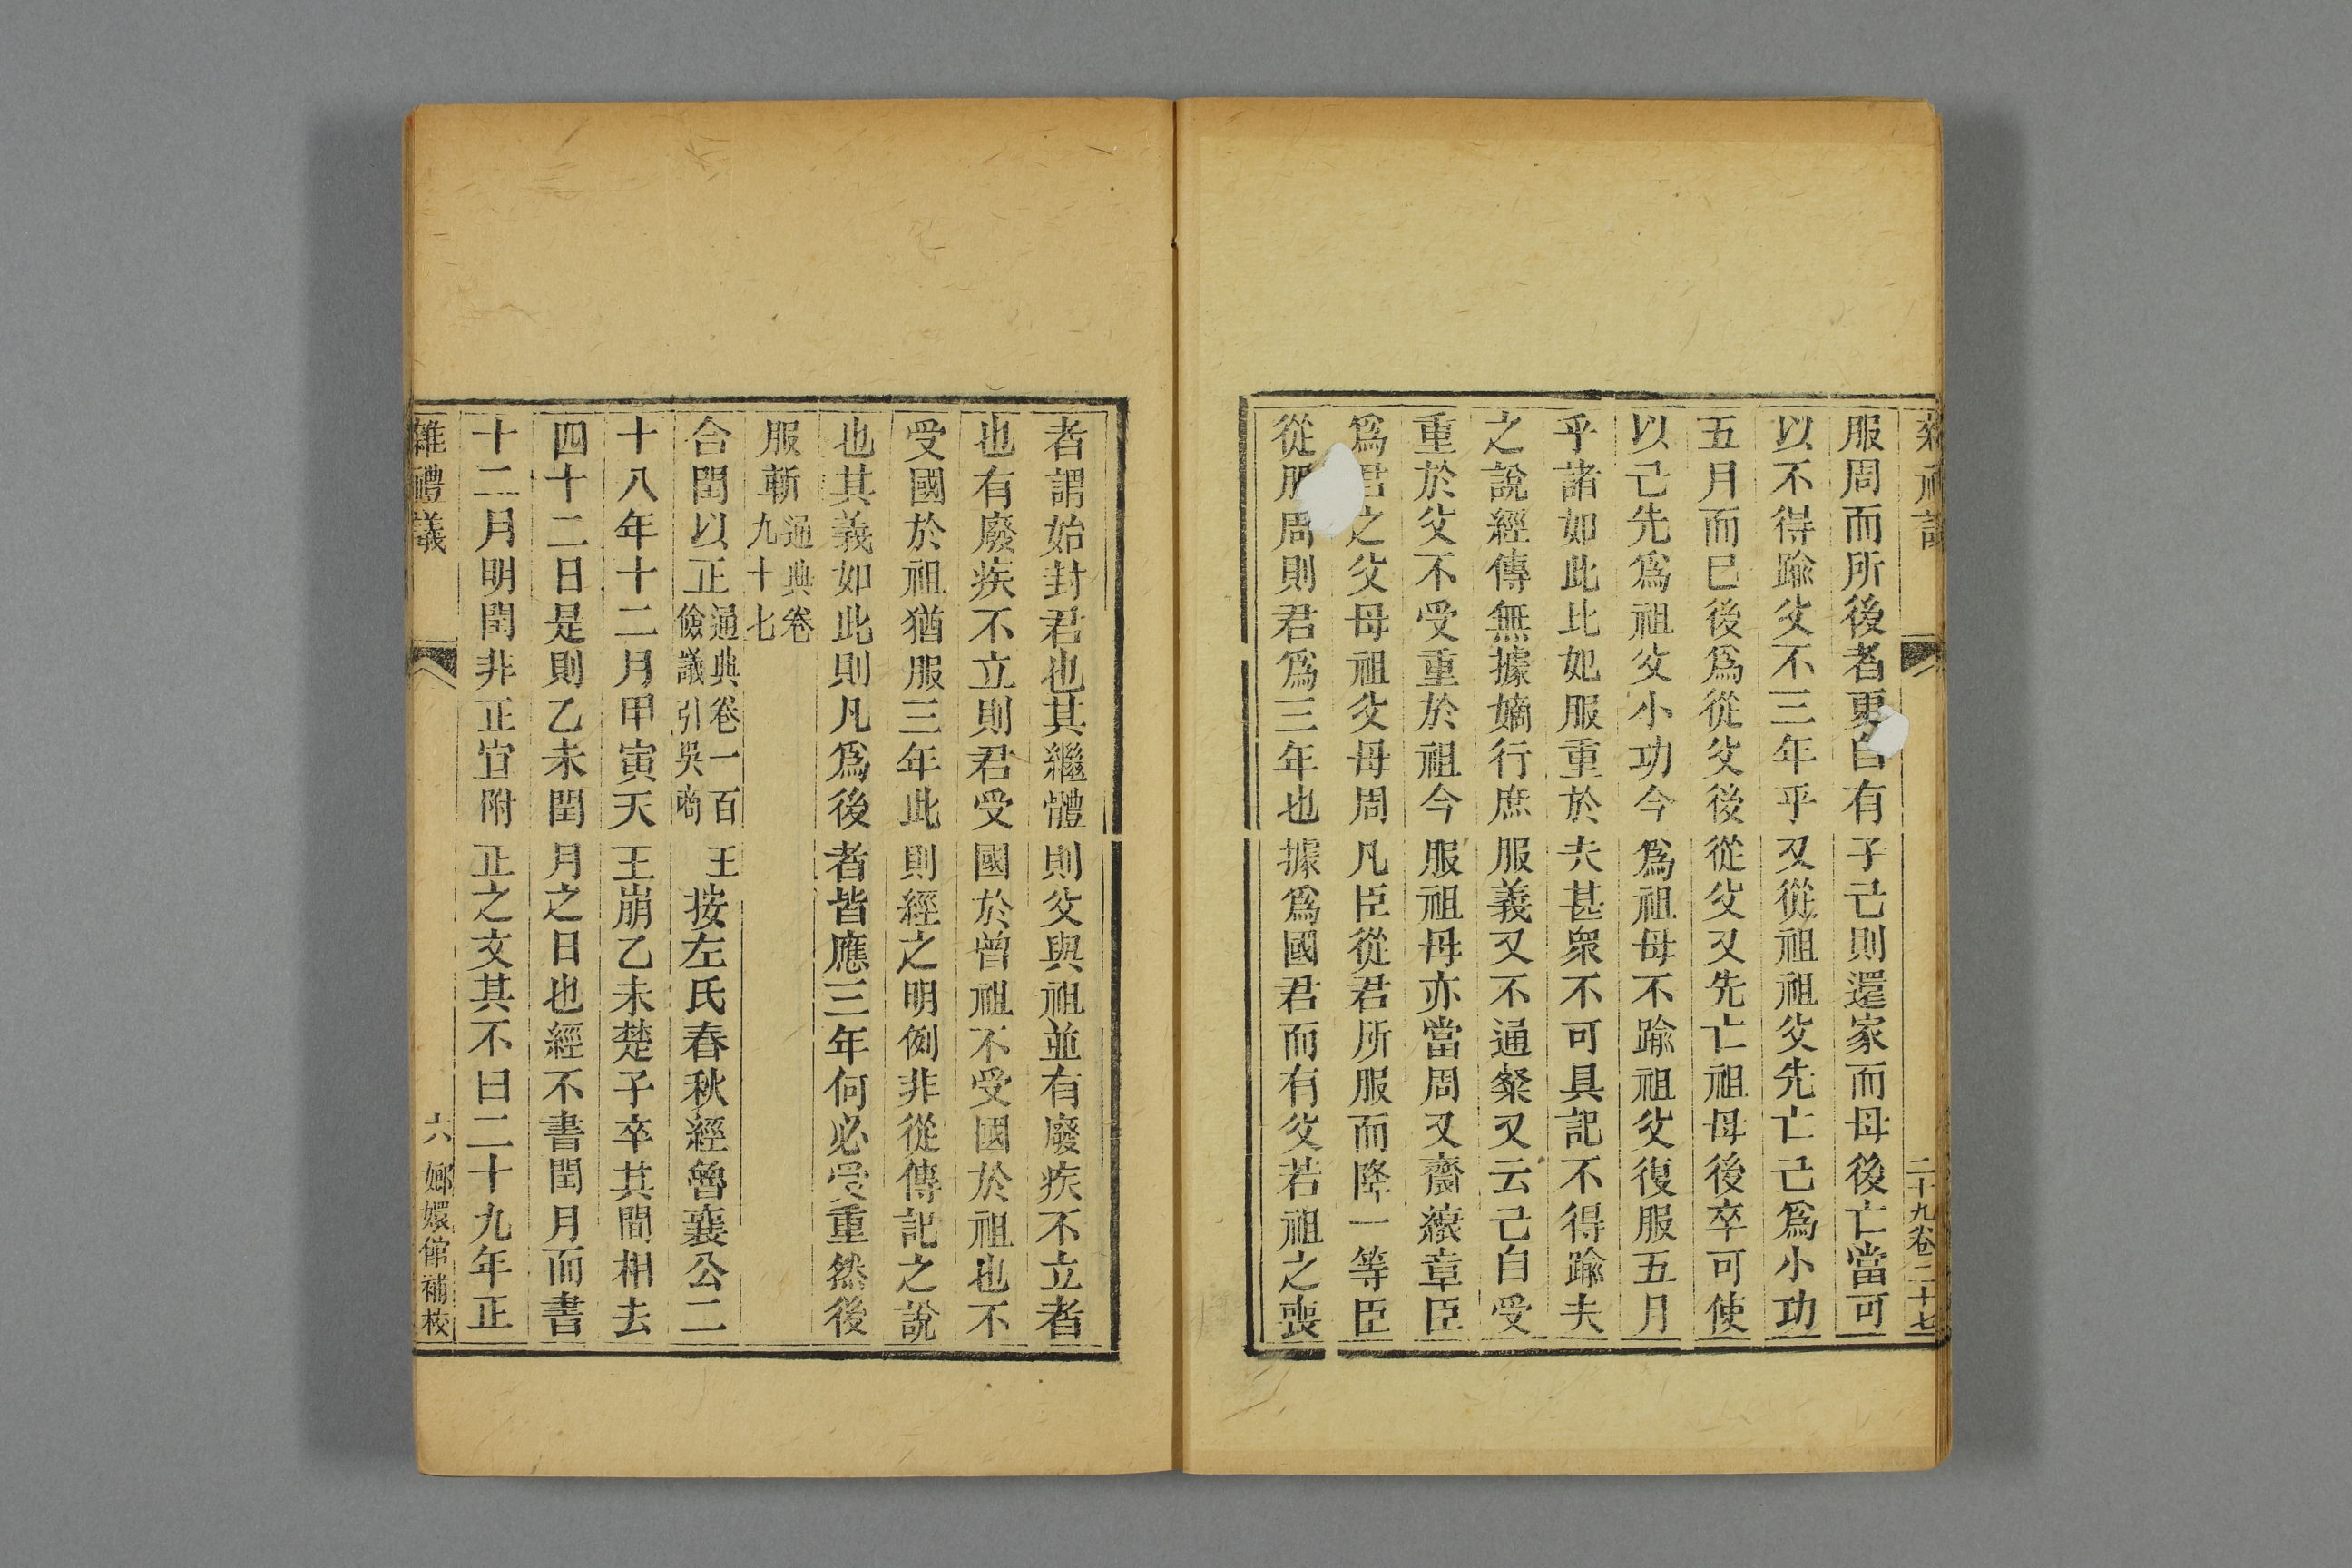 二十九卷二十七
服周而所後者更自有子己則還家而母後亡當可
以不得踰父不三年乎又從祖祖父先亡己爲小功
五月而已後爲從父後從父又先亡祖母後卒可使
以己先爲祖父小功今爲祖母不踰祖父復服五月
乎諸如此比妃服重於夫甚衆不可具記不得踰夫
之說經傳無據嫡行庶服義又不通粲又云己自受
重於父不受重於祖今服祖母亦當周又齊縗章臣
爲君之父母祖父母周凡臣從君所服而降一等臣
從服周則君爲三年也據爲國君而有父若祖之喪
者謂始封君也其繼體則父與祖並有廢疾不立者
也有廢疾不立則君受國於曾祖不受國於祖也不
受國於祖猶服三年此則經之明例非從傳記之說
也其義如此則凡爲後者皆應三年何必受重然後
服斬通典卷九十七
合閏以正通典卷一百王儉議引吳商按左氏春秋經魯襄公二
十八年十二月甲寅天王崩乙未楚子卒其間相去
四十二日是則乙未閏月之日也經不書閏月而書
十二月明閏非正宜附正之文其不曰二十九年正
雜禮議 六 嫏嬛館補校